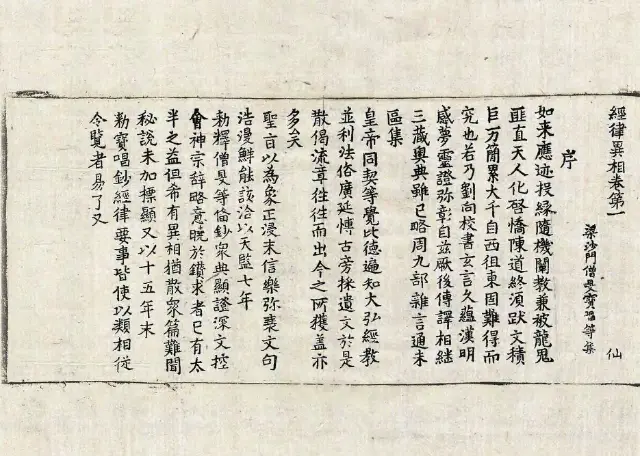 經律異相卷第一
仙
梁沙門僧旻寶唱等集
序
如来應迹投緣隨機闡教兼被龍鬼
匪直天人化啓憍陳道終須跋文積
巨万簡累大千自西徂東固難得而
究也若乃劉向挍書玄言久蘊漢明
感夢靈證弥彰自兹厥後傳譯相継
三藏奧典雖已略周九部雜言通未
區集
皇帝同契等覺比德遍知大弘經教
並利法俗廣延博古旁採遺文於是
散偈流章往往而出今之所獲盖亦
多矣
聖旨以為象正浸末信樂弥衰文句
浩漫鮮能該洽以天監七年
勑釋僧旻等俻鈔衆典顯證深文控
會神宗辞略意曉於鑚求者已有太
半之益但希有異相猶散衆篇難聞
秘説未加標顯又以十五年末
勑寶唱鈔經律要事皆使以類相従
令覽者易了又